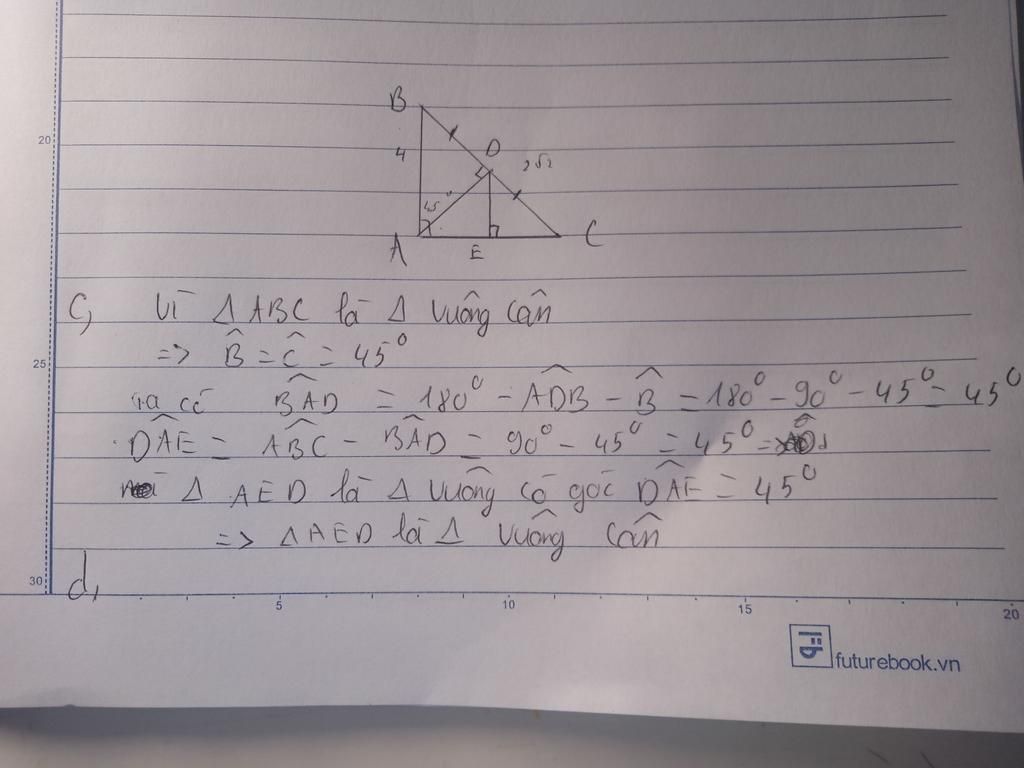 B
20
4
D
2√2
45°
A
E
C
c, Vì Δ ABC là Δ vuông cân
25
=> B̂ = Ĉ = 45°
Ta có BAD̂ = 180° - ADB̂ - B̂ = 180° - 90° - 45° = 45°
DAÊ = ABĈ - BAD̂ = 90° - 45° = 45°
Δ AED là Δ vuông có góc DAÊ = 45°
=> Δ AED là Δ vuông cân
30
d,
5 10 15 20
futurebook.vn